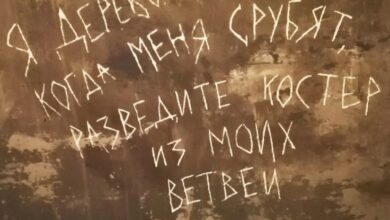 Я ДЕРЕВО
КОГДА МЕНЯ СРУБЯТ,
РАЗВЕДИТЕ КОСТЕР
ИЗ МОИХ
ВЕТВЕИ